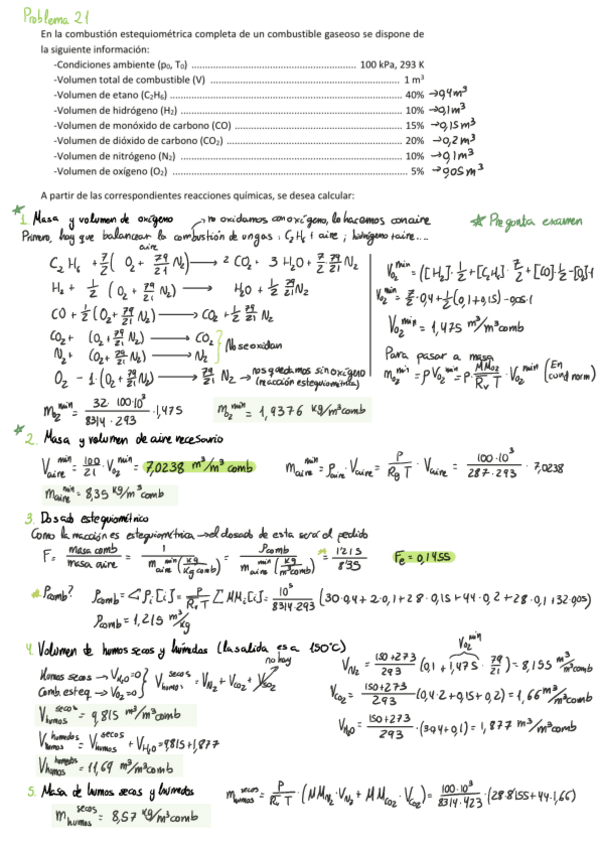 Problema 21
En la combustión estequiométrica completa de un combustible gaseoso se dispone de
la siguiente información:
-Condiciones ambiente (p₀, T₀) ........ 100 kPa, 293 K
-Volumen total de combustible (V) ........ 1 m³
-Volumen de etano (C₂H₆) ........ 40% → 0,4m³
-Volumen de hidrógeno (H₂) ........ 10% → 0,1m³
-Volumen de monóxido de carbono (CO) ........ 15% → 0,15m³
-Volumen de dióxido de carbono (CO₂) ........ 20% → 0,2m³
-Volumen de nitrógeno (N₂) ........ 10% → 0,1m³
-Volumen de oxígeno (O₂) ........ 5% → 0,05m³
A partir de las correspondientes reacciones químicas, se desea calcular:
1. Masa y volumen de oxígeno → no oxidamos con oxígeno, lo hacemos con aire
* Pregunta examen
Primero, hay que balancear la combustión de un gas: C₂H₆ + aire; hidrógeno + aire....
aire
C₂H₆ + 7/2 (O₂ + 79/21 N₂) → 2 CO₂ + 3 H₂O + 7/2 79/21 N₂
H₂ + 1/2 (O₂ + 79/21 N₂) → H₂O + 1/2 79/21 N₂
CO + 1/2 (O₂ + 79/21 N₂) → CO₂ + 1/2 79/21 N₂
CO₂ + (O₂ + 79/21 N₂) → CO₂
N₂ + (O₂ + 79/21 N₂) → N₂
No se oxidan
O₂ - 1·(O₂ + 79/21 N₂) → 79/21 N₂ → nos quedamos sin oxígeno
(reacción estequiométrica)
V_O₂^min = [H₂]·1/2 + [C₂H₆]·7/2 + [CO]·1/2 - [O₂]·1
V_O₂^min = 7/2·0,4 + 1/2(0,1+0,15) - 0,05·1
V_O₂^min = 1,475 m³/m³comb
Para pasar a masa
m_O₂^min = ρ V_O₂^min = P·MM_O₂/(R_v T) · V_O₂^min (En cond norm)
m_O₂^min = 32·100·10³/(8314·293) · 1,475 m_O₂^min = 1,9376 kg/m³comb
2. Masa y volumen de aire necesario
V_aire^min = 100/21 · V_O₂^min = 7,0238 m³/m³ comb
m_aire^min = ρ_aire · V_aire = P/(R_g T) · V_aire = 100·10³/(287·293) · 7,0238
m_aire^min = 8,35 kg/m³comb
3. Dosado estequiométrico
Como la reacción es estequiométrica → el dosado de esta será el pedido
F = masa comb/masa aire = 1/m_aire^min (kg/kg comb) = ρ_comb/m_aire^min (kg/m³comb) = 1'215/8'35 F_e = 0,1455
* ρcomb? ρcomb = Σρᵢ[i] = P/(R_v T) Σ MMᵢ[i] = 10⁵/(8314·293) (30·0,4 + 2·0,1 + 28·0,15 + 44·0,2 + 28·0,1 + 32·0,05)
ρcomb = 1,215 m³/kg
4. Volumen de humos secos y húmedos (la salida es a 150°C)
Humos secos → V_H₂O = 0
Comb. esteq → V_O₂ = 0
V_humos^secos = V_N₂ + V_CO₂ + V_SO₂
no hay
V_humos^secos = 9,815 m³/m³comb
V_humos^humedos = V_humos^secos + V_H₂O = 9,815 + 1,877
V_humos^humedos = 11,69 m³/m³comb
V_O₂^min
V_N₂ = (150+273)/293 (0,1 + 1,475 · 79/21) = 8,155 m³/m³comb
V_CO₂ = (150+273)/293 (0,4·2 + 0,15 + 0,2) = 1,66 m³/m³comb
V_H₂O = (150+273)/293 · (3·0,4 + 0,1) = 1,877 m³/m³comb
5. Masa de humos secos y húmedos
m_humos^secos = P/(R_v T) · (MM_N₂ · V_N₂ + MM_CO₂ · V_CO₂) = 100·10³/(8314·423) · (28·8,155 + 44·1,66)
m_humos^secos = 8,57 kg/m³comb